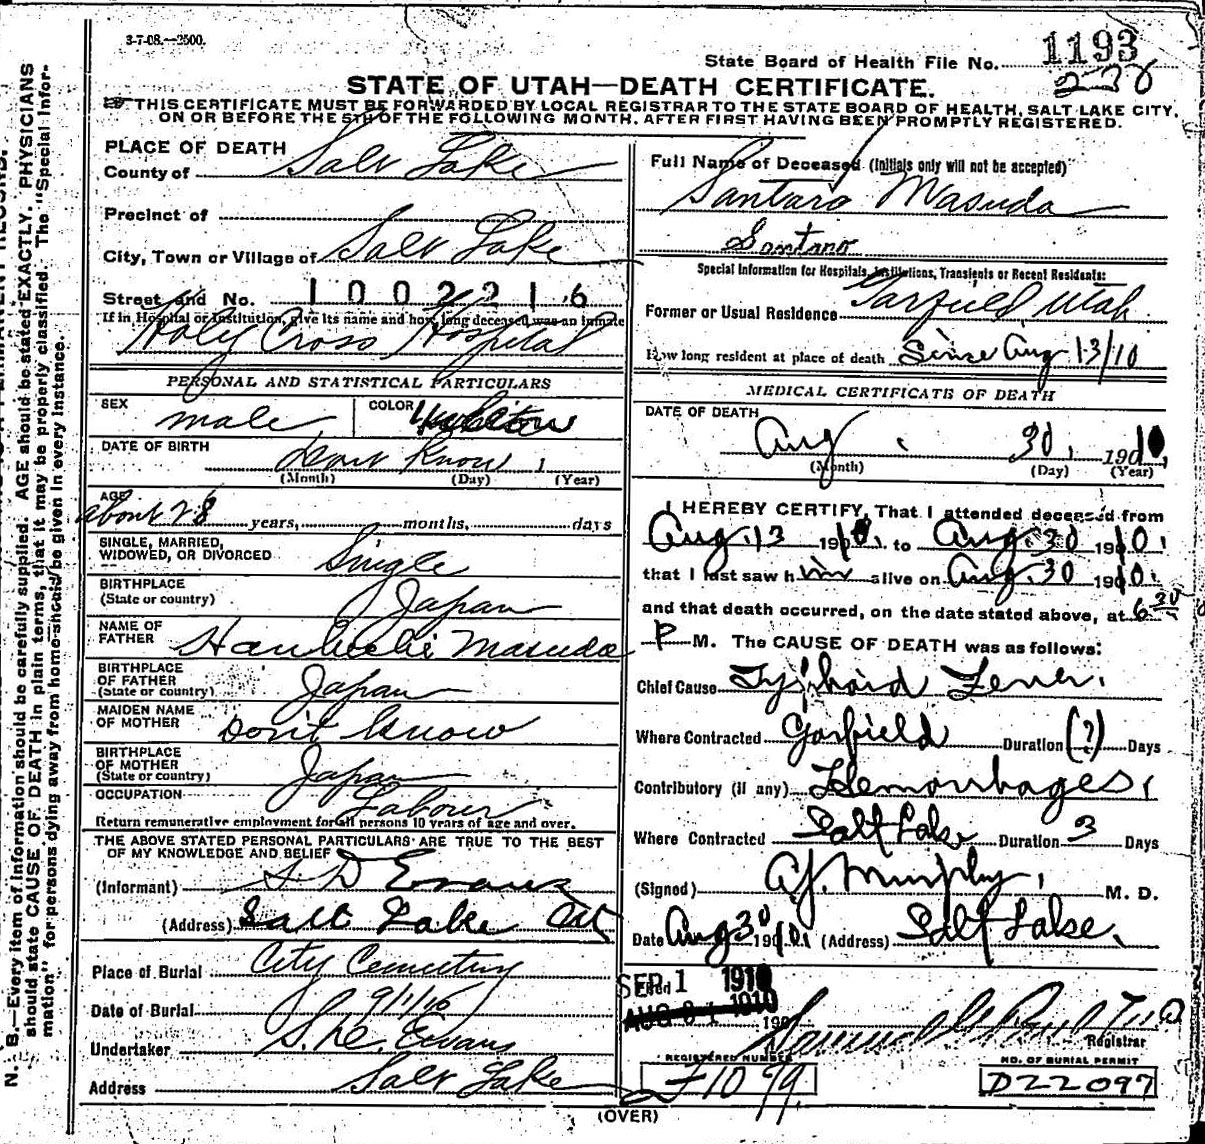 3-7-08.—2500.
State Board of Health File No. 1193
238
STATE OF UTAH—DEATH CERTIFICATE.
THIS CERTIFICATE MUST BE FORWARDED BY LOCAL REGISTRAR TO THE STATE BOARD OF HEALTH, SALT LAKE CITY,
ON OR BEFORE THE 5TH OF THE FOLLOWING MONTH, AFTER FIRST HAVING BEEN PROMPTLY REGISTERED.
N. B.—Every item of information should be carefully supplied. AGE should be stated EXACTLY. PHYSICIANS
should state CAUSE OF DEATH in plain terms, that it may be properly classified. The "Special Infor-
mation" for persons dying away from home should be given in every instance.
PLACE OF DEATH
County of Salt Lake
Precinct of
City, Town or Village of Salt Lake
Street and No. 1002216
If in Hospital or Institution, give its name and how long deceased was an inmate
Holy Cross Hospital
PERSONAL AND STATISTICAL PARTICULARS
SEX male
COLOR
DATE OF BIRTH Dont Know 1
(Month) (Day) (Year)
AGE about 28 years, months, days
SINGLE, MARRIED,
WIDOWED, OR DIVORCED Single
BIRTHPLACE
(State or country) Japan
NAME OF
FATHER Masuda
BIRTHPLACE
OF FATHER
(State or country) Japan
MAIDEN NAME
OF MOTHER Don't Know
BIRTHPLACE
OF MOTHER
(State or country) Japan
OCCUPATION Labour
Return remunerative employment for all persons 10 years of age and over.
THE ABOVE STATED PERSONAL PARTICULARS ARE TRUE TO THE BEST
OF MY KNOWLEDGE AND BELIEF
(Informant) S. D Evans
(Address) Salt Lake City
Place of Burial City Cemetery
Date of Burial 9/1/10
Undertaker S. D. Evans
Address Salt Lake
Full Name of Deceased (Initials only will not be accepted)
Santaro Masuda
Santaro
Special Information for Hospitals, Institutions, Transients or Recent Residents:
Former or Usual Residence Garfield Utah
How long resident at place of death Since Aug 13/10
MEDICAL CERTIFICATE OF DEATH
DATE OF DEATH
Aug 30, 1910
(Month) (Day) (Year)
I HEREBY CERTIFY, That I attended deceased from
Aug. 13 1910, to Aug. 30 1910.
that I last saw him alive on Aug. 30 1910.
and that death occurred, on the date stated above, at 6 30
P M. The CAUSE OF DEATH was as follows:
Chief Cause Typhoid Fever.
Where Contracted Garfield Duration (?) Days
Contributory (if any) Hemorrhages.
Where Contracted Salt Lake Duration 3 Days
(Signed) A.J. Murphy, M. D.
Date Aug 30 1910. (Address) Salt Lake.
Filed SEP 1 1910
AUG 31 1910 190
Registrar
REGISTERED NUMBER
F1099
NO. OF BURIAL PERMIT
D22097
(OVER)